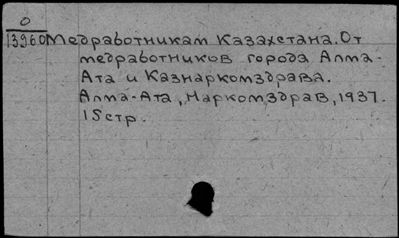 О
13960 Медработникам Казахстана. От
медработников города Алма-
Ата и Казнаркомздрава.
Алма-Ата, Наркомздрав, 1937.
15стр.